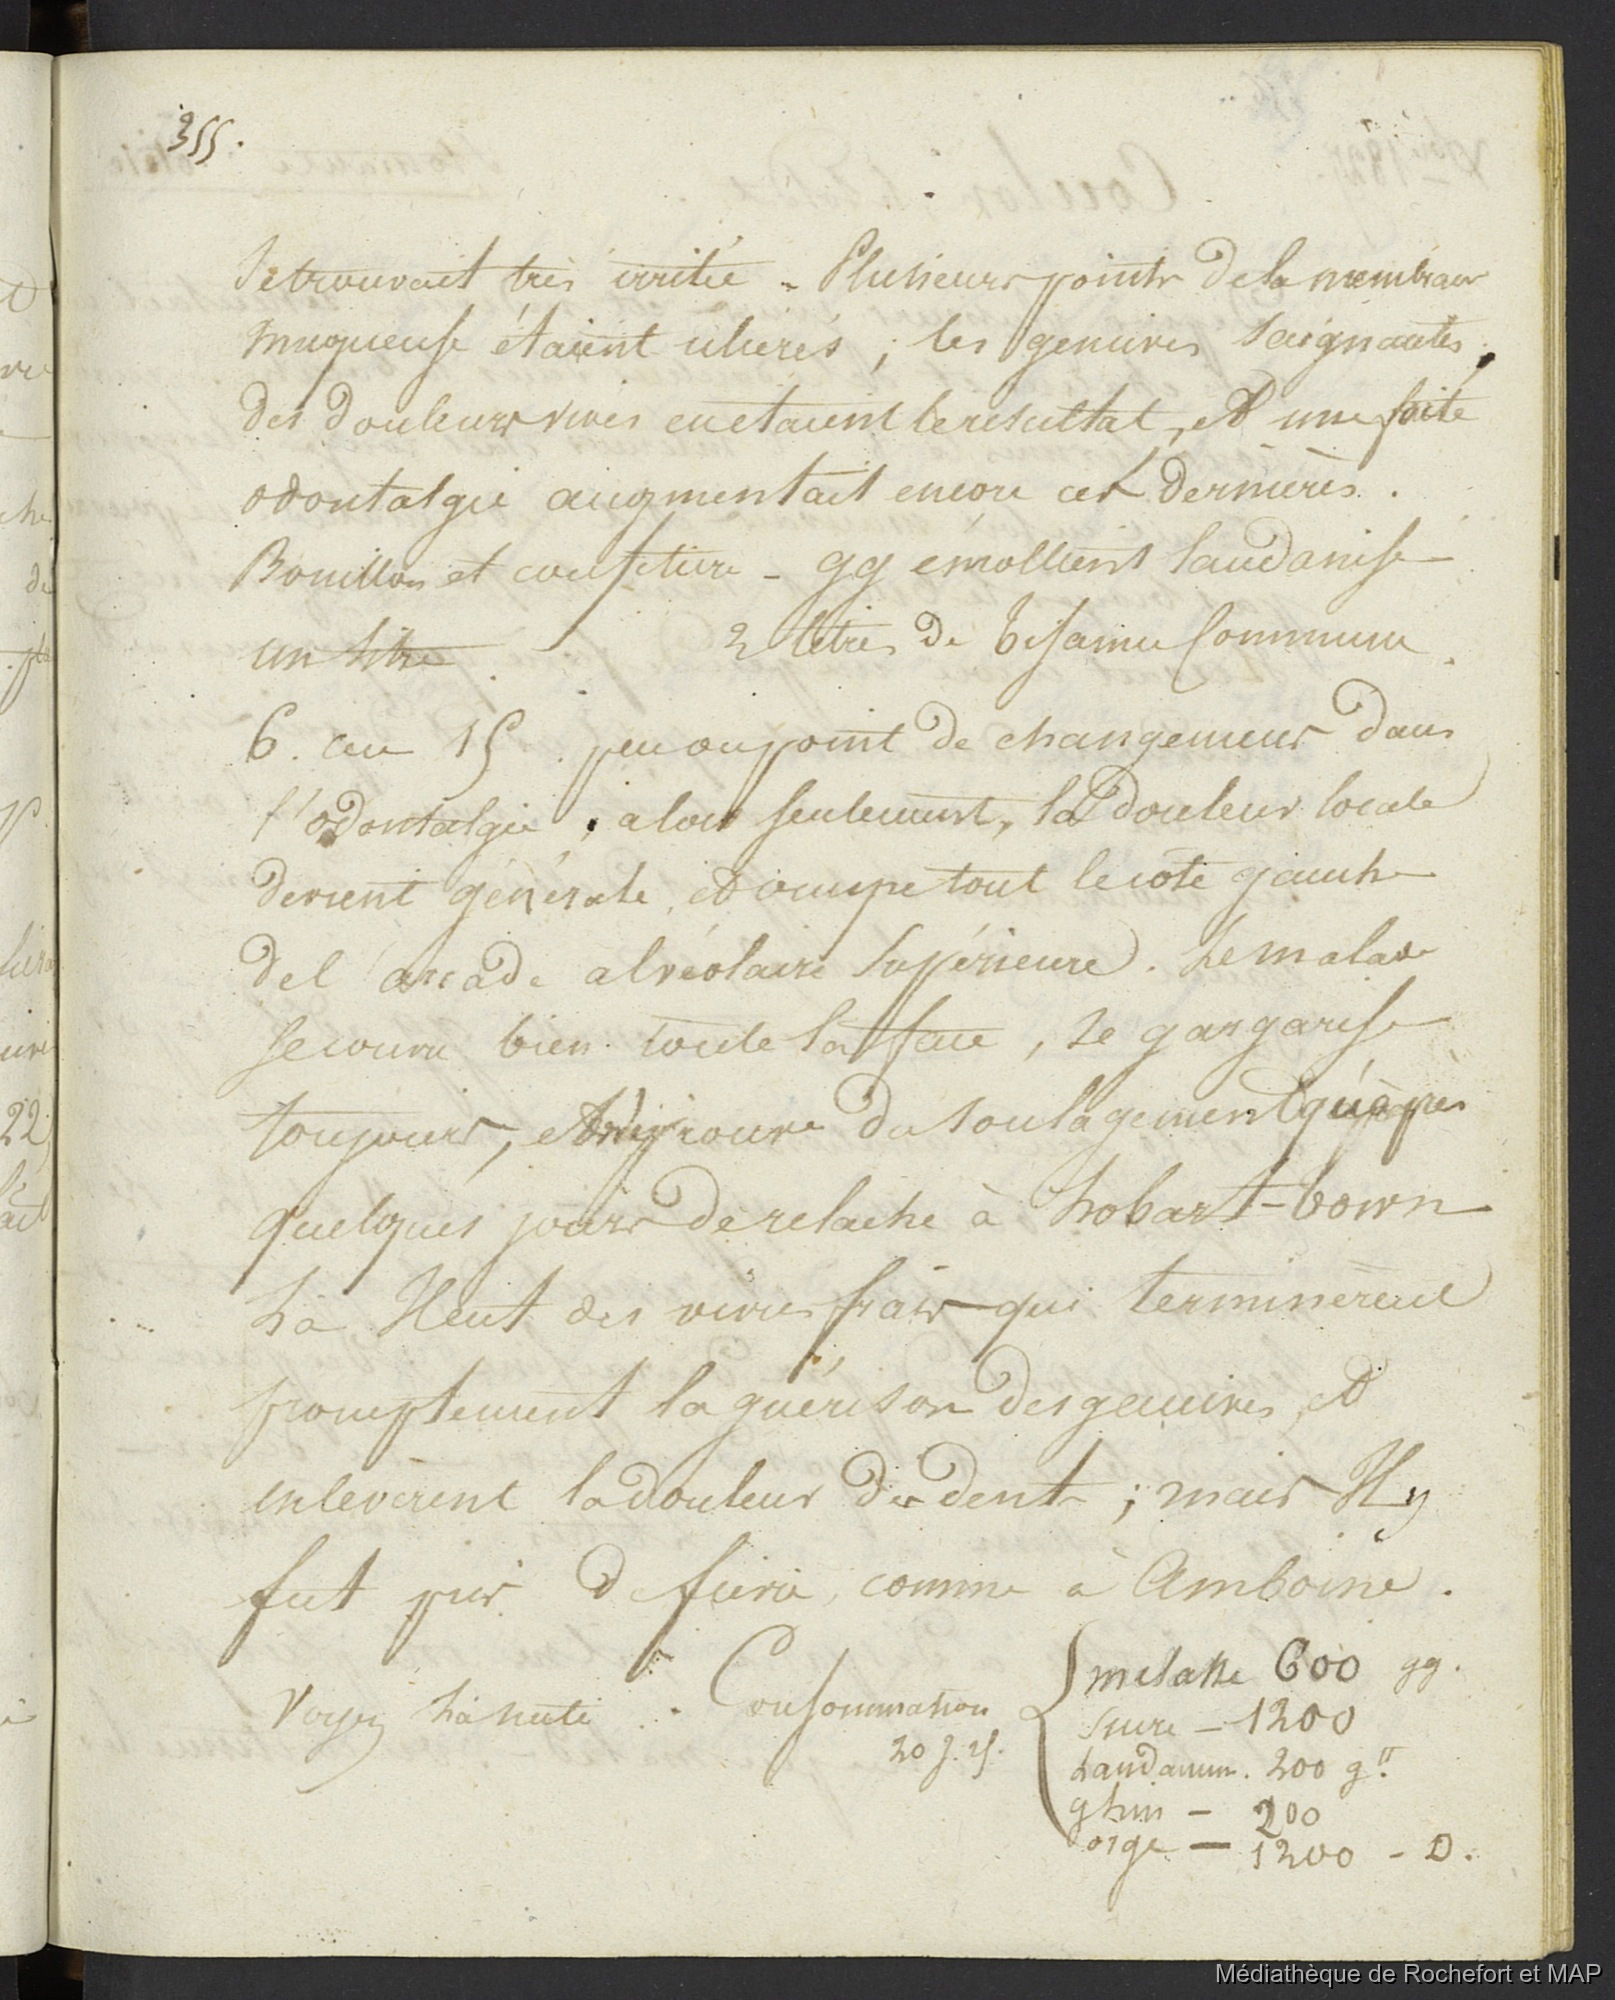 355.
se trouvait très irritée - Plusieurs points de la membrane
muqueuse étaient ulcérés ; les gencives saignantes,
des douleurs vives en étaient le résultat, et une forte
odontalgie augmentait encore ces dernières.
Bouillon et confiture - gg émollient laudanisé
un litre. 2 litres de tisanne commune.
6. au 15. peu ou point de changemens dans
l'odontalgie ; alors seulement, la douleur locale
devient générale, et occupe tout le côté gauche
de l'arcade alvéolaire supérieure. Le malade
se couvre bien toute la face, se gargarise
toujours, et n'éprouve du soulagement qu'après
quelques jours de relache à hobart-town
Là Il eut des vivres frais qui terminèrent
promptement la guérison des gencives, et
enlevèrent la douleur de dents ; mais Il y
fut pris de fièvre, comme à Amboine.
Voyez la suite. Consommation
20 j. 15.
melasse 600 gg.
sucre - 1200
Laudanum. 200 gtt.
g lin - 200
orge - 1200 - D.
Médiathèque de Rochefort et MAP